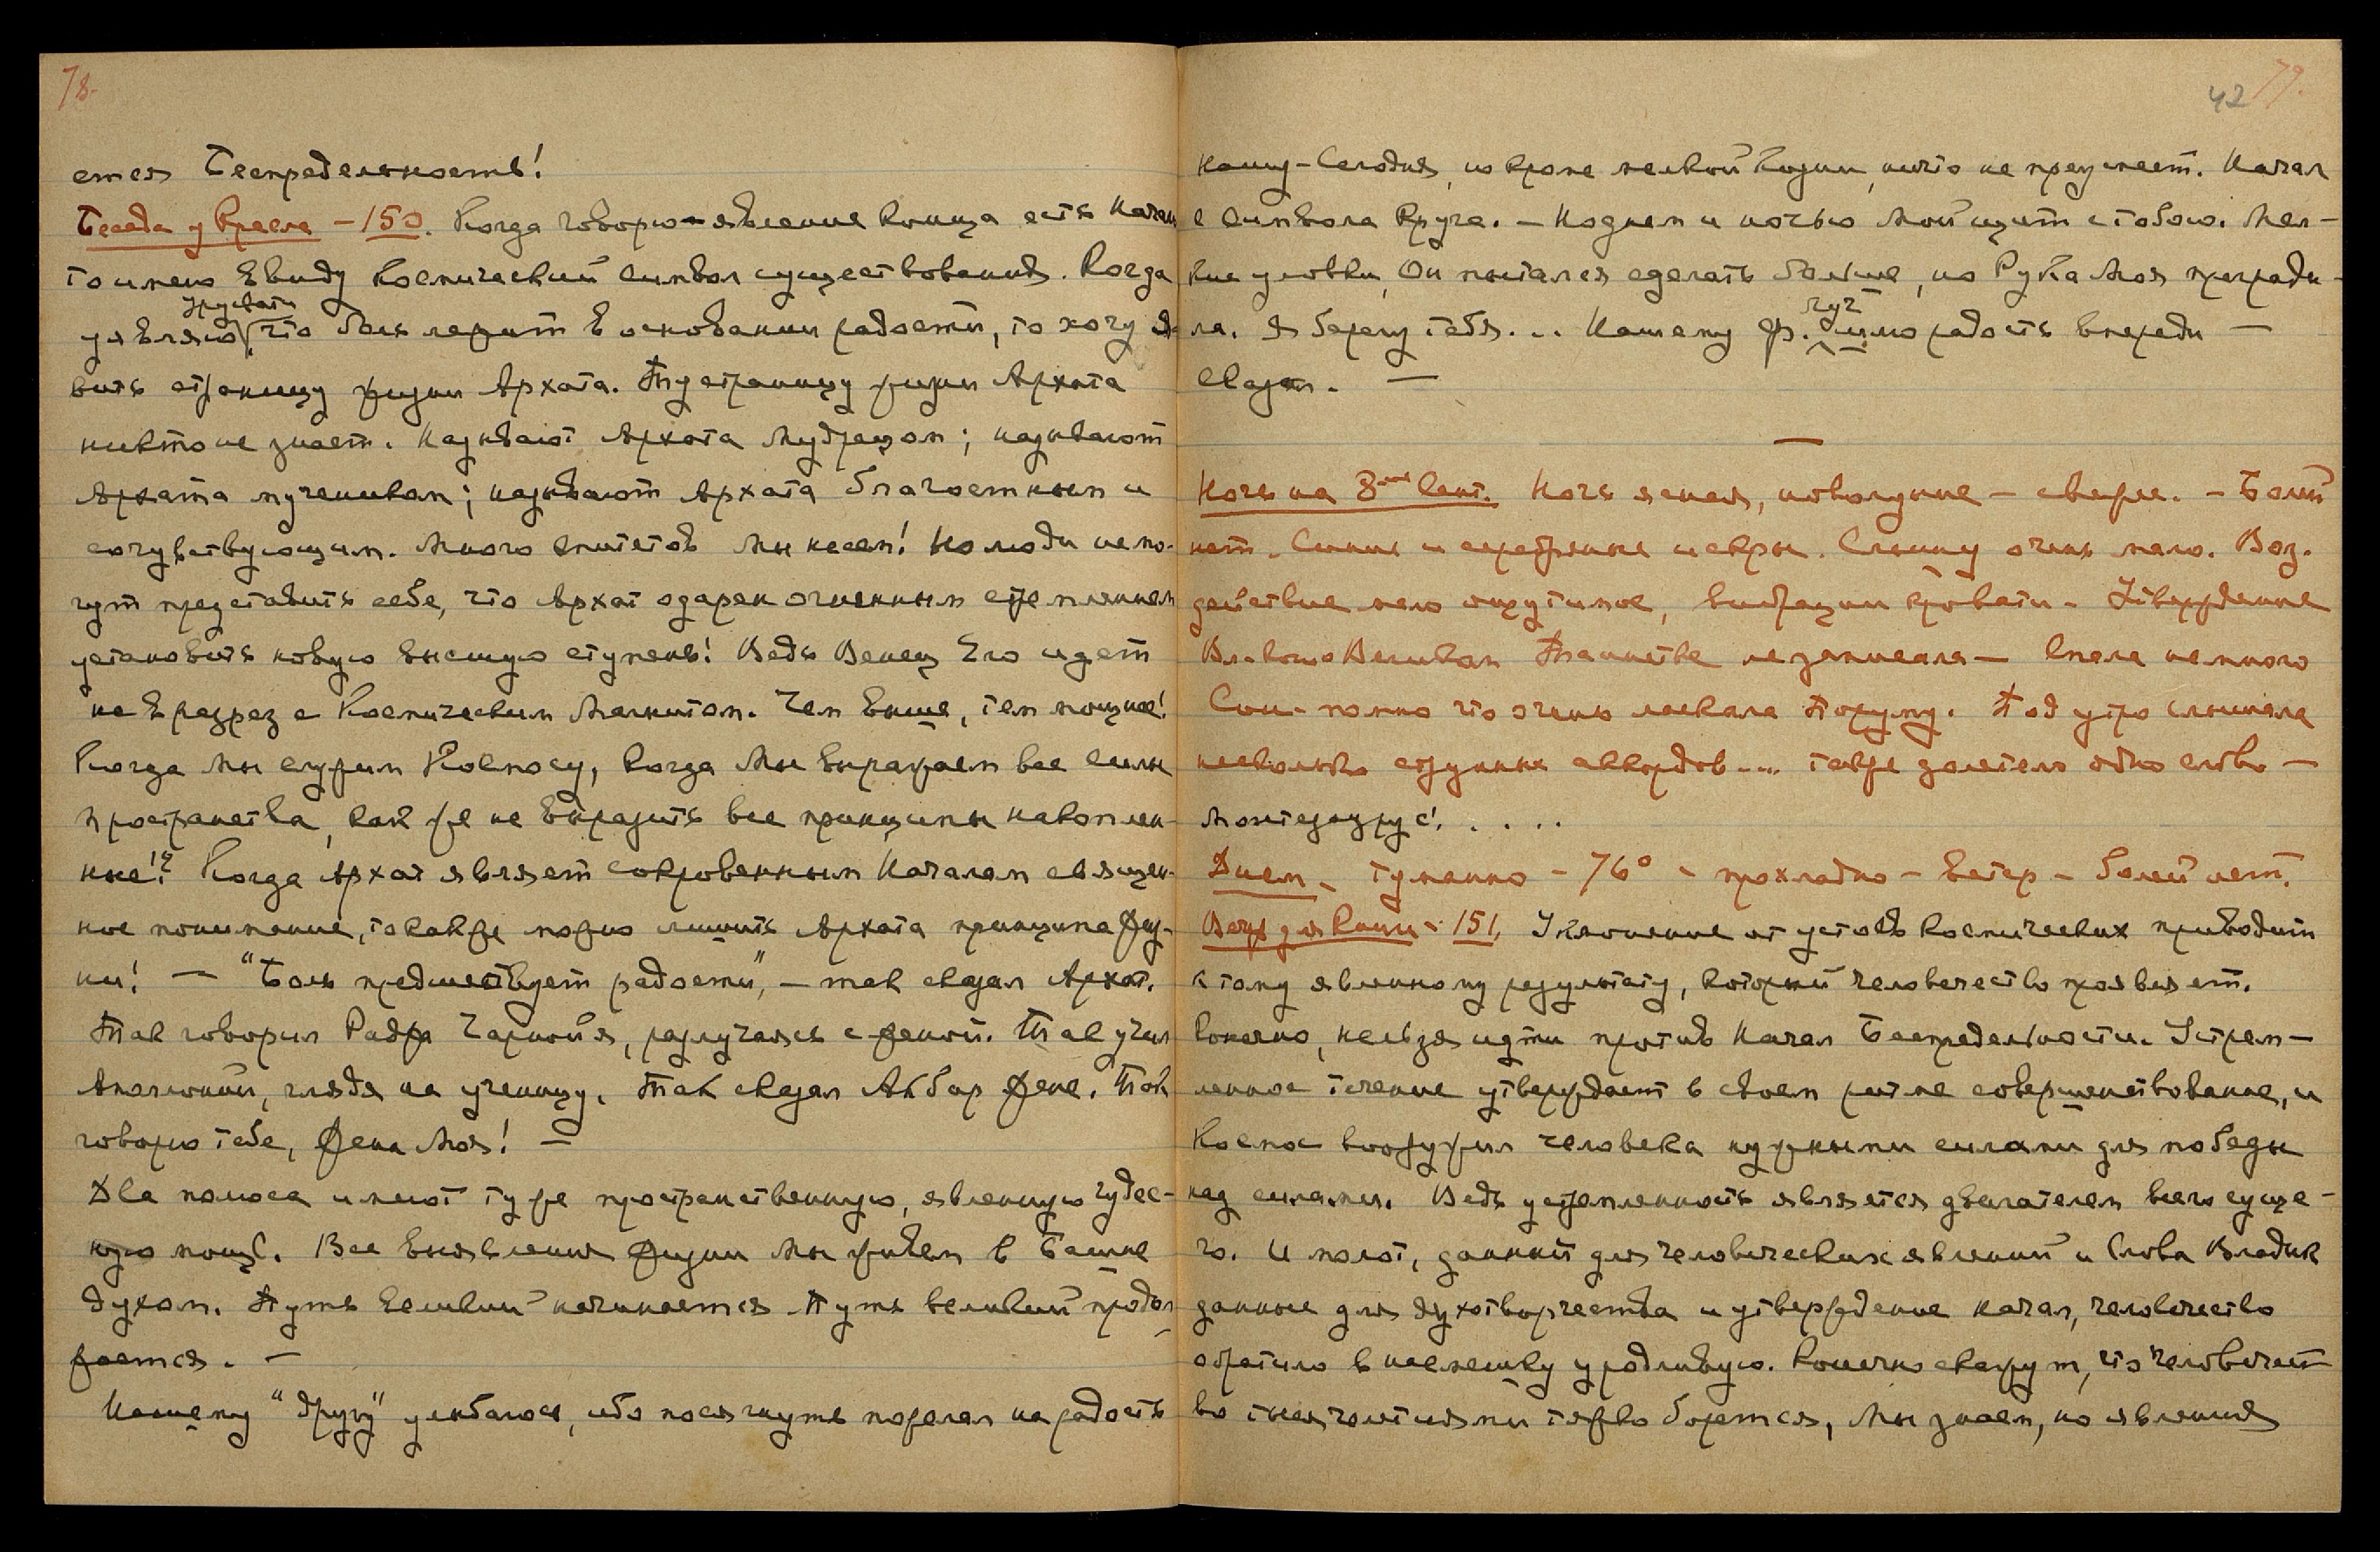 78.
ется Беспредельность!
Беседа у Кресла – 150. Когда говорю – явление конца есть Начало,
то имею в виду космический символ существования. Когда
являю грустъ
что боль лежит в основании радости, то хочу яв-
вить страницу жизни Архата. Ту страницу жизни Архата
никто не знает. Называют Архата мудрецом; называют
Архата мучеником; называют Архата благостным и
сочувствующим. Много эпитетов Мы несем! Но люди не мо-
гут представить себе, что Архат одарен огненным стремлением
установить новую высшую ступень! Ведь Венец Его идет
не в разрез с Космическим Магнитом. Чем выше, тем мощнее!
Когда Мы служим Космосу, когда Мы выражаем все силы
пространства, как же не выразить все принципы накоплен-
ные!? Когда Архат являет сокровенным Началам священ-
ное понимание, то как же можно лишить Архата принципа Жиз-
ни! – "Боль предшествует радости", – так сказал Архат.
Так говорил Раджа Чарнойя, разлучаясь с женой. Так учил
Аполоний, глядя на ученицу. Так сказал Акбар Жене. Так
говорю тебе, Жена Моя! –
Два полюса имеют ту же пространственную, явленную чудес-
ную мощь. Все выявления Жизни Мы живем в Башне
духом. Путь великий начинается. Путь великий продол-
жается. –
Нашему "другу" улыбаюсь, ибо посягнуть пожелал на радость
42 79.
нашу – Сегодня, но кроме мелкой козни, ничто не преуспеет. Начал
с символа Круга. – Но днем и ночью Мой щит с тобою. Мел-
кие уловки, Он пытался сделать больше, но Рука Моя прегради-
ла. Я берегу тебя... Нашему Ф. радость впереди –
луч
Сказал. –
Ночь на 8ое Сент. Ночь ясная, новолуние – свеже. – Болей
нет. Синие и серебряные искры. Слышу очень мало. Воз-
действие мало ощутимое, вибрации кровати – Утверждение
Вл. Великом Таинстве не записала – Спала немного
Сон – помню что очень ласкала Поруму. Под утро слышала
несколько созвучных аккордов.... также долетело одно слово –
Монтезаурус!. . . . .
Днем – туманно – 76° – прохладно – ветер – болей нет.
Вечер для Книги – 151. Уклонение от устоев космических приводит
к тому явленному результату, который человечество проявляет.
Конечно, нельзя идти против Начал Беспредельности. Устрем-
ленное течение утверждает в своем ритме совершенствование, и
Космос вооружил человека нужными силами для победы
над силами. Ведь устремленность является двигателем всего суще-
го. И полет, данный для человеческих явлений и Слова Владык
данные для духотворчества и утверждение начал, человечество
обратило в насмешку уродливую. Конечно скажут, что человечест-
во тысячелетиями тяжко борется, Мы знаем, но явления